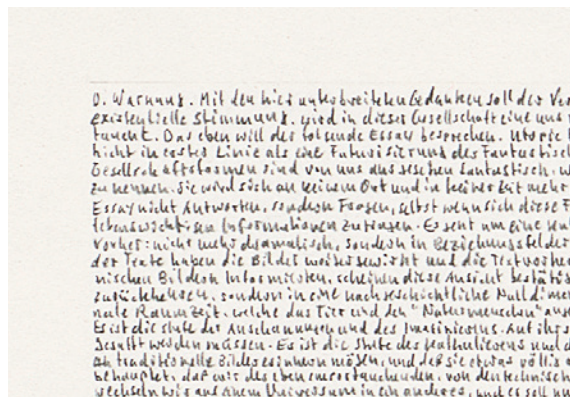 0. Warnung. Mit den hier unterbreiteten Gedanken soll der Ver
existentielle Stimmung. wird in dieser Gesellschaft eine uns
taucht. Das eben will der folgende Essay besprechen. Utopie
nicht in erster Linie als eine Futurisierung des Fantastisch
Gesellschaftsformen sind von uns aus gesehen fantastisch. w
zu nennen. Sie wird sich an keinem Ort und in keiner Zeit mehr
Essay nicht Antworten, sondern Fragen, selbst wenn sich diese F
lebenswichtigen Informationen zutragen. Es geht um eine
vorher: nicht mehr dramatisch, sondern in Beziehungsfelder
der Texte haben die Bilder weitergewirkt und die Textvorher
nischen Bildern Informierten, scheinen diese Ansicht bestätig
zurückkehren, sondern in eine nachgeschichtliche Nulldimen
nale Raumzeit, welche das Tier und den "Naturmenschen"
Es ist die Stufe der Anschauung und des Imaginierens. Auf ihr
gerafft werden müssen. Es ist die Stufe des und d
an traditionelle Bilder erinnern mögen, und daß sie etwas völlig a
behauptet, daß mit den eben emportauchenden, von den technisch
wechseln wir aus einem Universum in ein anderes, und es soll nun